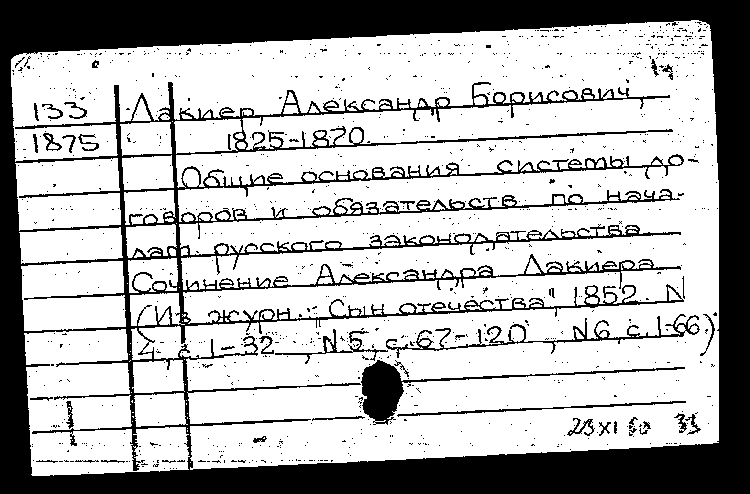 133 Лакиер, Александр Борисович,
1875 1825-1870.
Общие основания системы до-
говоров и обязательств по нача-
лам русского законодательства.
Сочинение Александра Лакиера.
(Из журн. "Сын отечества", 1852. N
4, с. 1-32, N 5, с. 67-120, N 6, с. 1-66.)